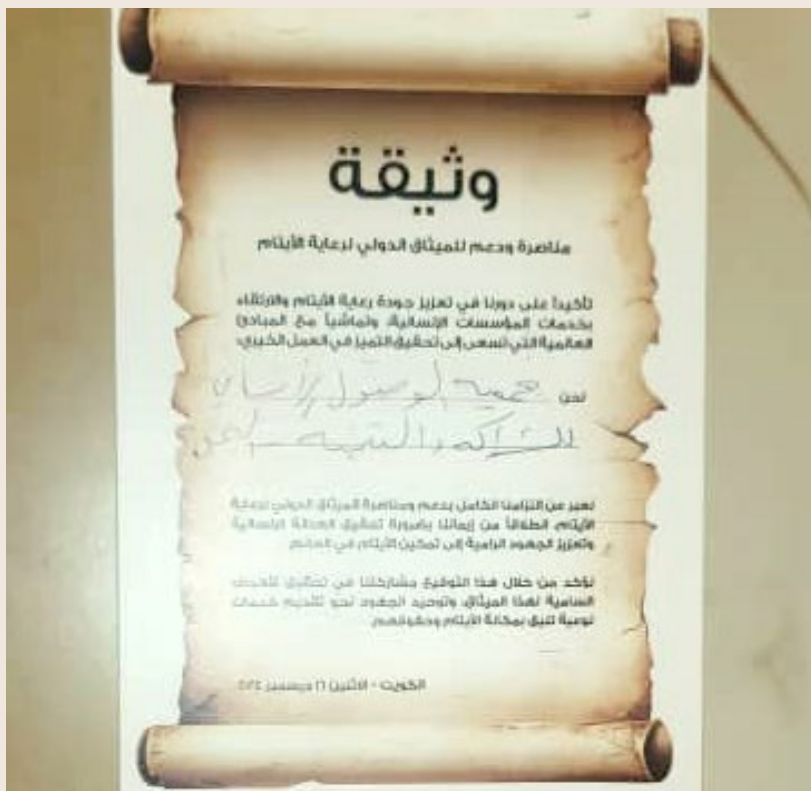 وثيقة
مناصرة ودعم للميثاق الدولي لرعاية الأيتام
تأكيداً على دورنا في تعزيز جودة رعاية الأيتام والارتقاء
بخدمات المؤسسات الإنسانية، وتماشياً مع المبادئ
العالمية التي تسعى إلى تحقيق التميز في العمل الخيري،
نحن جمعية الوصول الإنساني
للشراكة والتنمية - اليمن
نعبر عن التزامنا الكامل بدعم ومناصرة الميثاق الدولي لرعاية
الأيتام، انطلاقاً من إيماننا بضرورة تحقيق العدالة الإنسانية
وتعزيز الجهود الرامية إلى تمكين الأيتام في العالم.
نؤكد من خلال هذا التوقيع مشاركتنا في تحقيق الأهداف
السامية لهذا الميثاق، وتوحيد الجهود نحو تقديم خدمات
نوعية تليق بمكانة الأيتام وحقوقهم.
الكويت - الاثنين ١٦ ديسمبر ٢٠٢٤